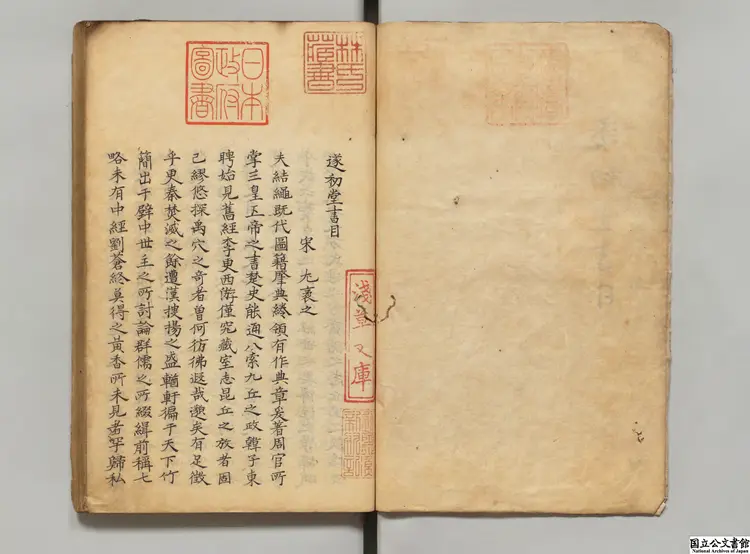 遂初堂書目
宋 尤袤之
夫結繩既代圖籍肇典綘領有作典章爰著周官所
掌三皇五帝之書楚史能通八索九丘之政韓子東
聘始見舊經李吏西遊僅窕藏室志昆丘之放者固
已繆悠探禹穴之奇者曽何彷彿遐哉邈矣有足徵
乎更秦焚滅之餘遭漢搜揚之盛輶軒徧于天下竹
簡出于壁中世主之所討論群儒之所綴緝前稱七
略末有中經劉蒼終莫得之黃香所未見者罕歸私
日本
政府
圖書
林氏
藏書
淺草文庫
国立公文書館
National Archives of Japan